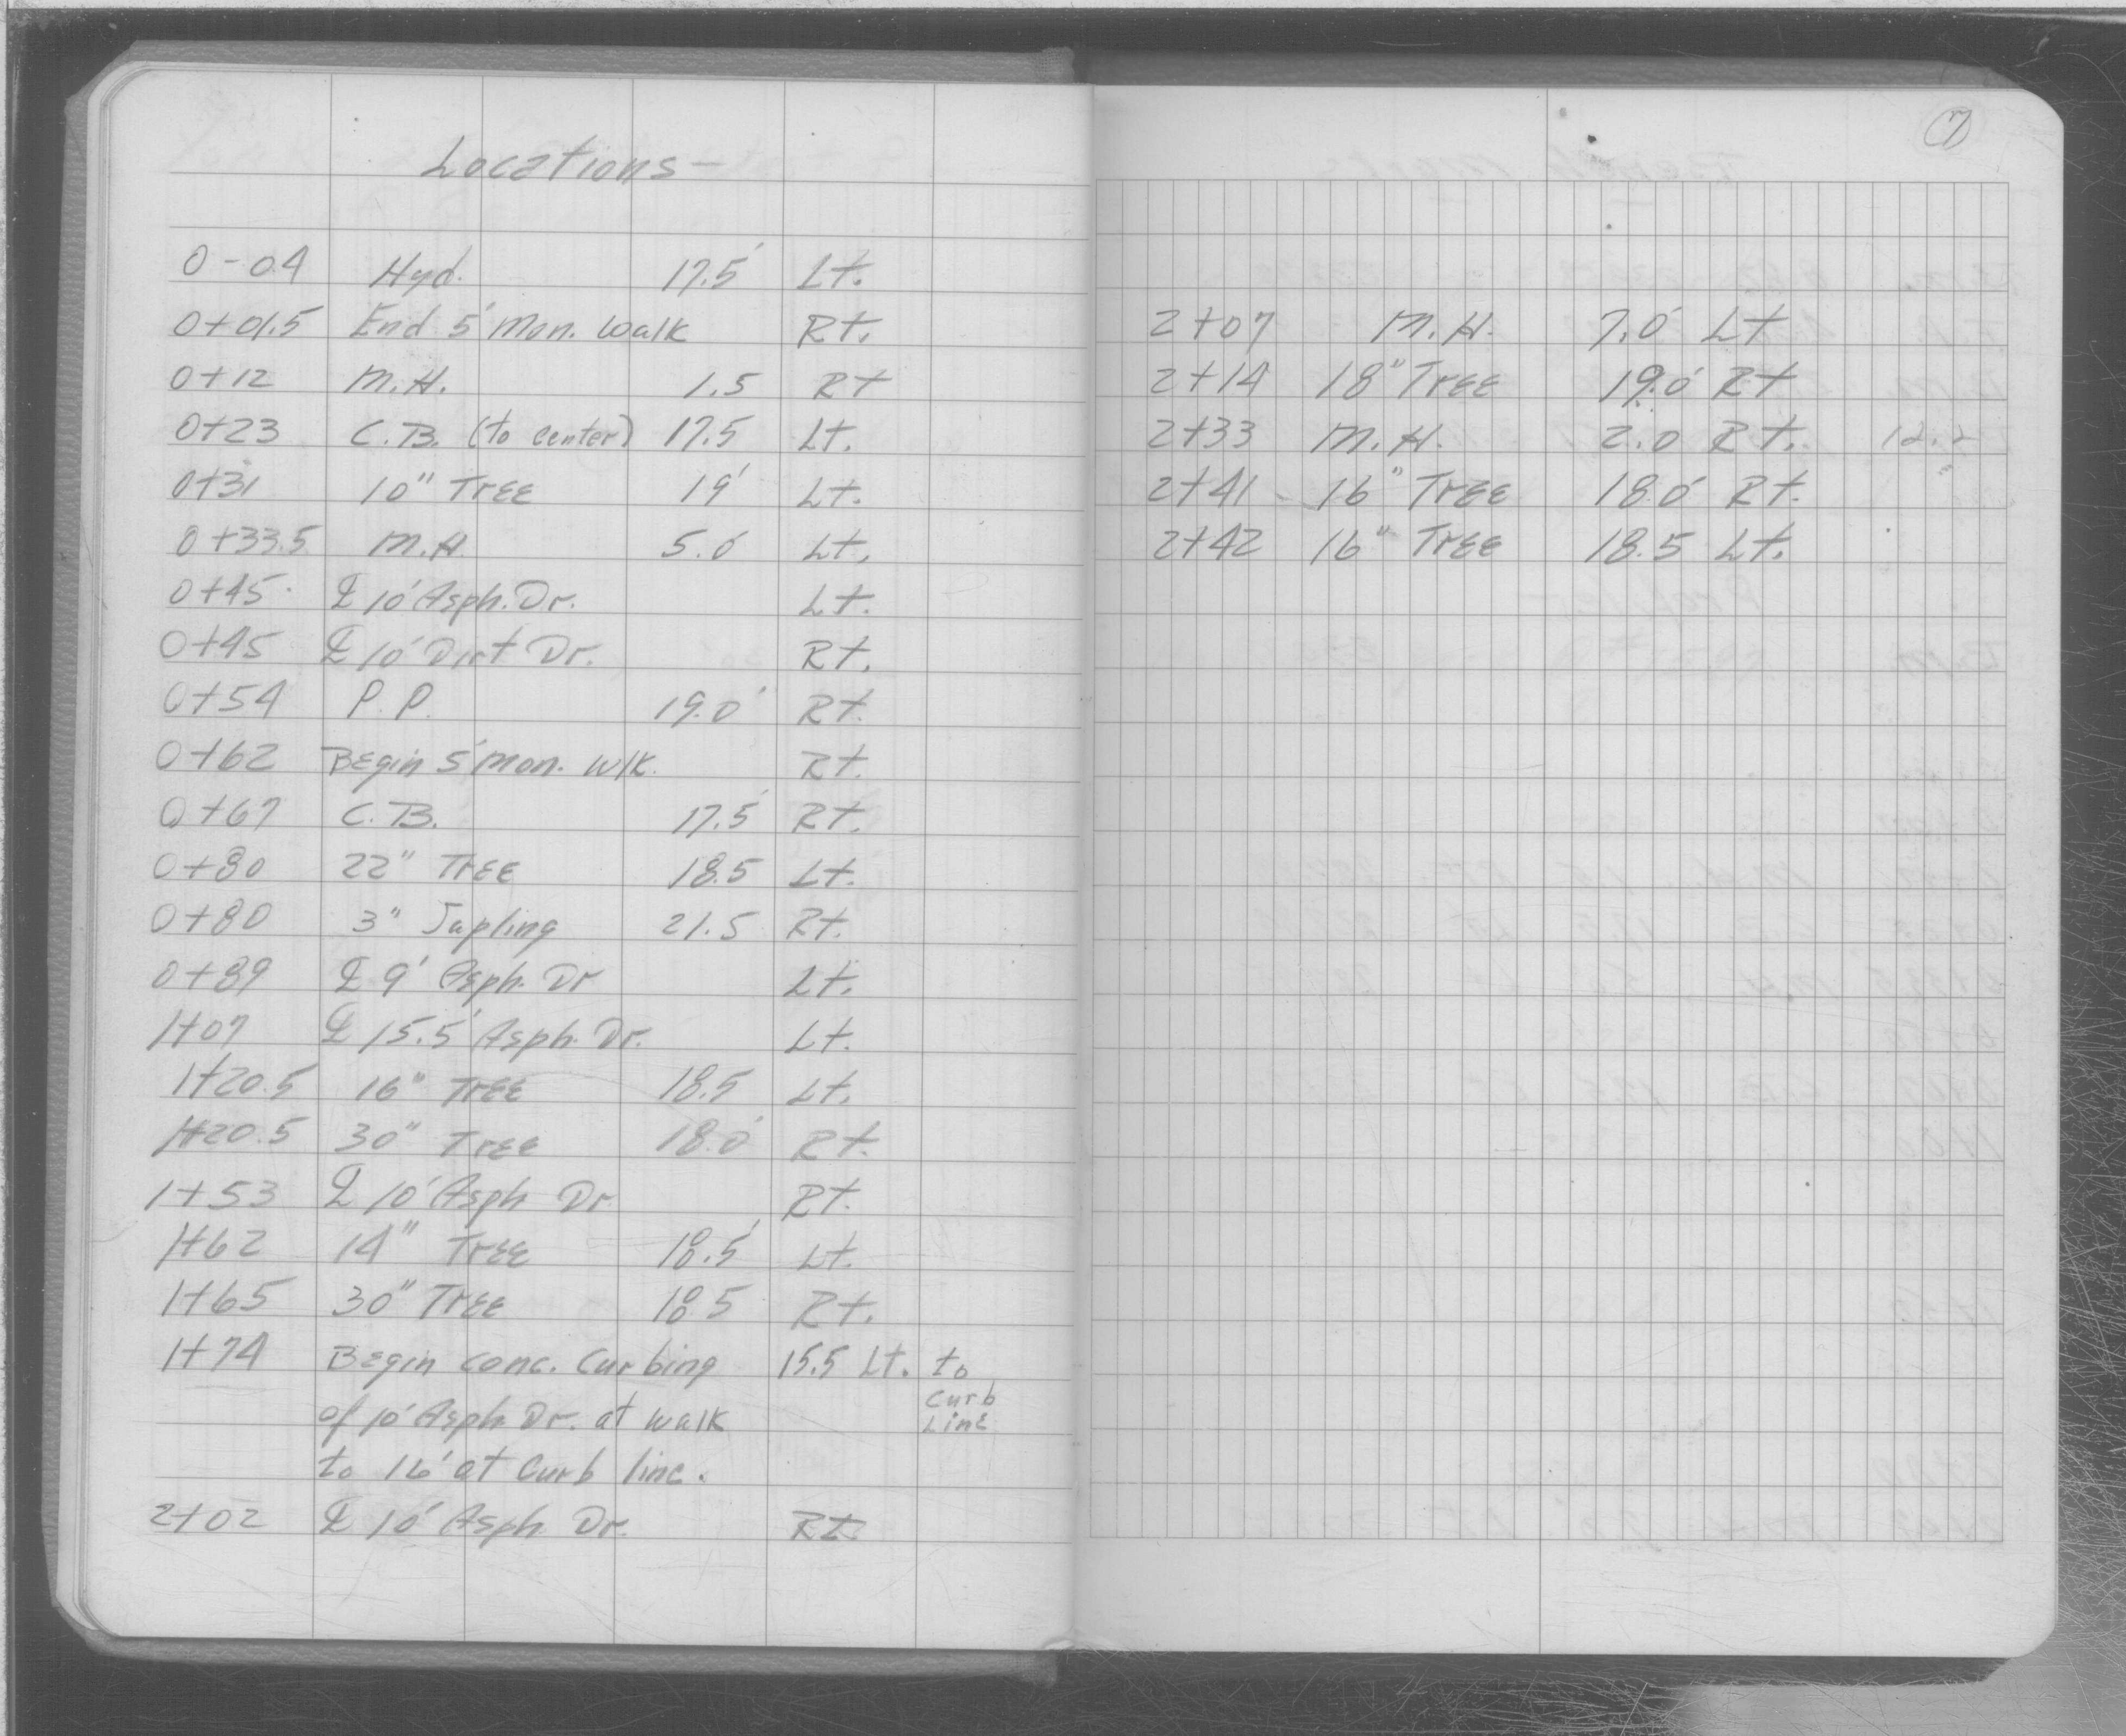 Locations —
0-04 Hyd. 17.5' Lt.
0+01.5 End 5' Mon. Walk Rt.
0+12 M.H. 1.5 Rt
0+23 C.B. (to center) 17.5 Lt.
0+31 10" Tree 19' Lt.
0+33.5 M.H. 5.0' Lt.
0+45 ℄ 10' Asph. Dr. Lt.
0+45 ℄ 10' Dirt Dr. Rt.
0+54 P.P. 19.0' Rt.
0+62 Begin 5' Mon. Wlk. Rt.
0+67 C.B. 17.5' Rt.
0+80 22" Tree 18.5 Lt.
0+80 3" Sapling 21.5 Rt.
0+89 ℄ 9' Asph. Dr Lt.
1+07 ℄ 15.5' Asph. Dr. Lt.
1+20.5 16" Tree 18.5 Lt.
1+20.5 30" Tree 18.0' Rt.
1+53 ℄ 10' Asph Dr. Rt.
1+62 14" Tree 18.5' Lt.
1+65 30" Tree 18.5 Rt.
1+74 Begin conc. Curbing 15.5 Lt. to
Curb
of 10' Asph Dr. at walk Line
to 16' at Curb line.
2+02 ℄ 10' Asph Dr. Rt.
7
2+07 M.H. 7.0' Lt
2+14 18" Tree 19.0' Rt
2+33 M.H. 2.0 Rt. 12.2
2+41 16" Tree 18.0' Rt. "
2+42 16" Tree 18.5 Lt.